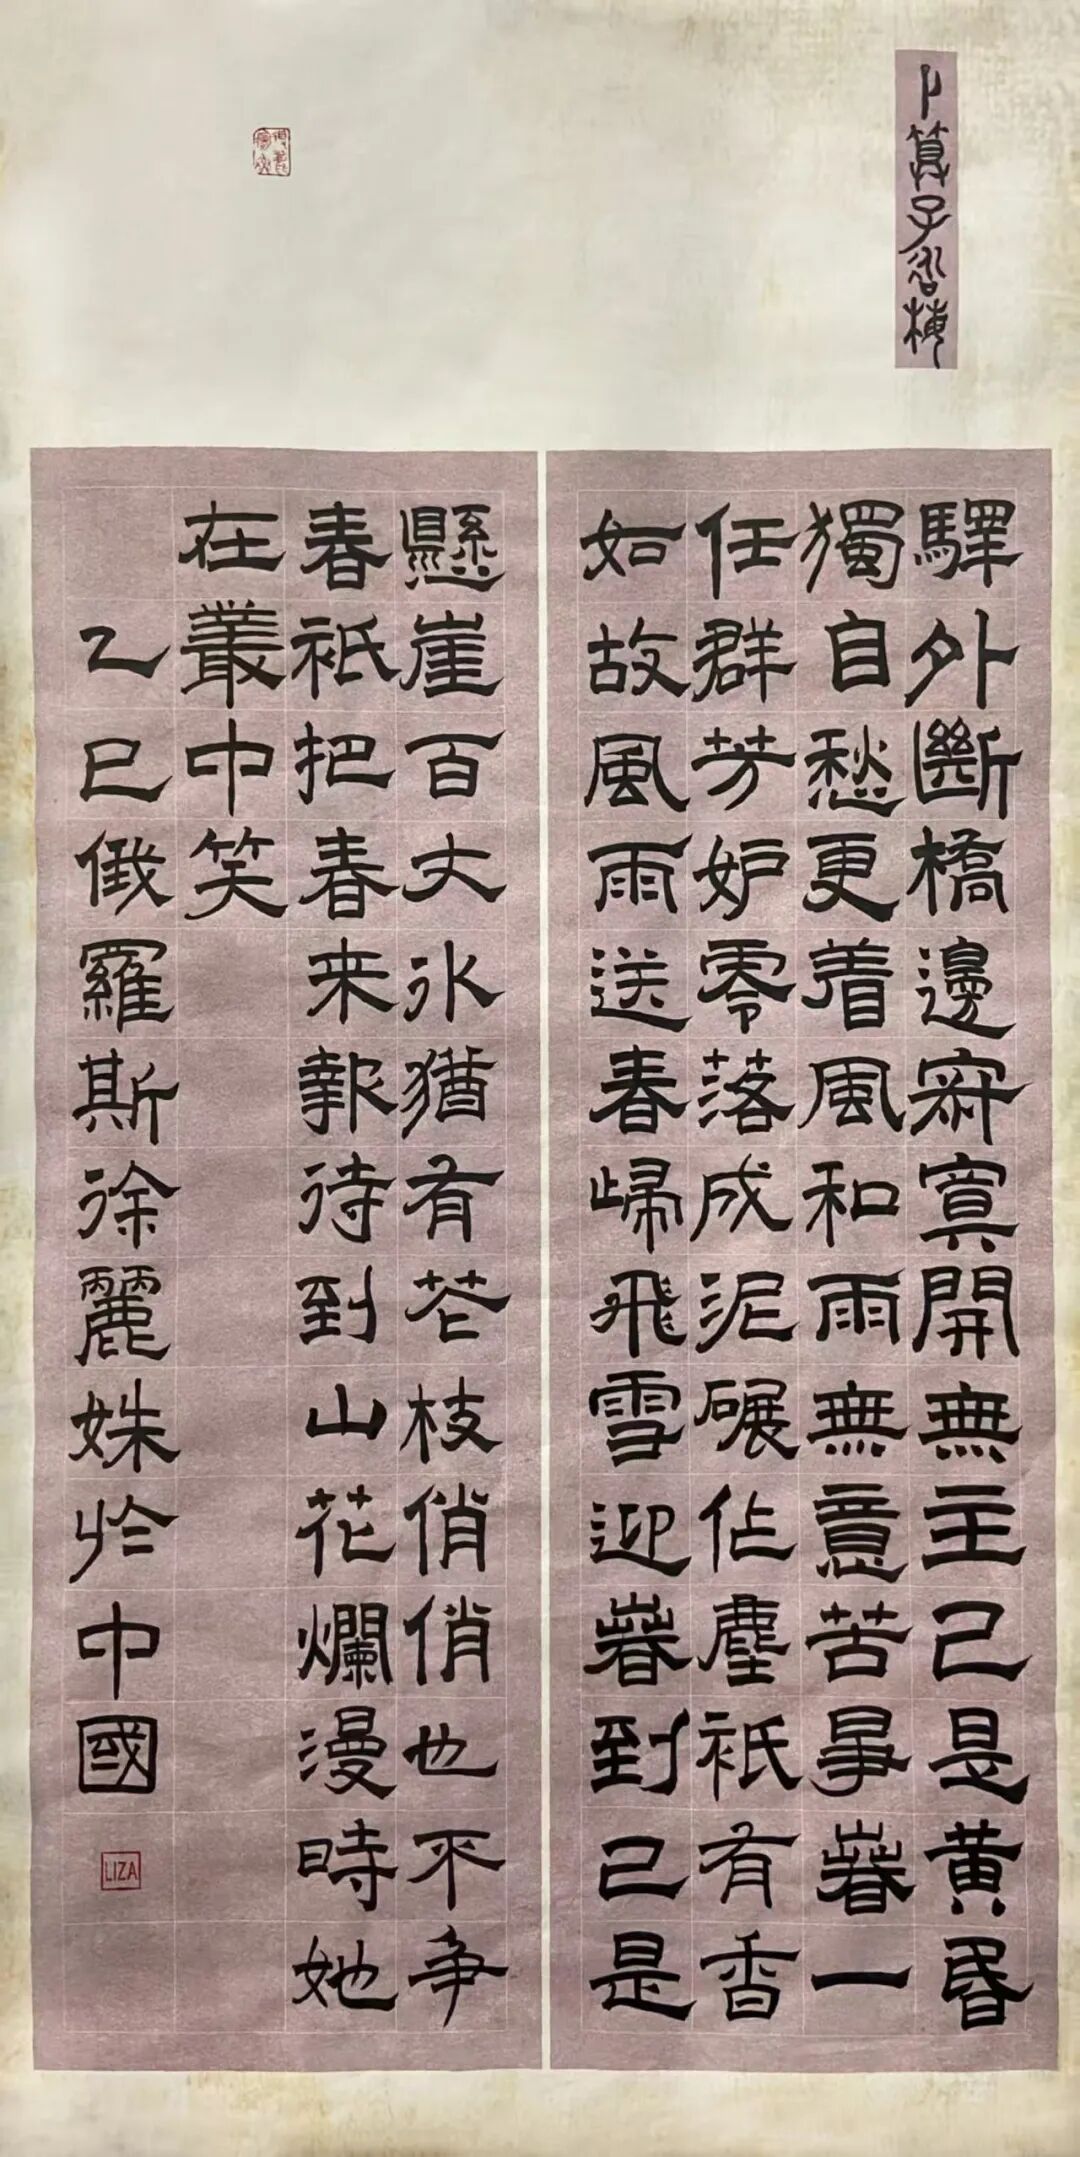 卜算子咏梅
驛外斷橋邊寂寞開無主已是黄昏
獨自愁更着風和雨無意苦爭春一
任群芳妒零落成泥碾作塵祇有香
如故風雨送春歸飛雪迎春到已是
懸崖百丈冰猶有花枝俏俏也不爭
春祇把春来報待到山花爛漫時她
在叢中笑
乙巳俄羅斯徐麗姝於中國
LIZA